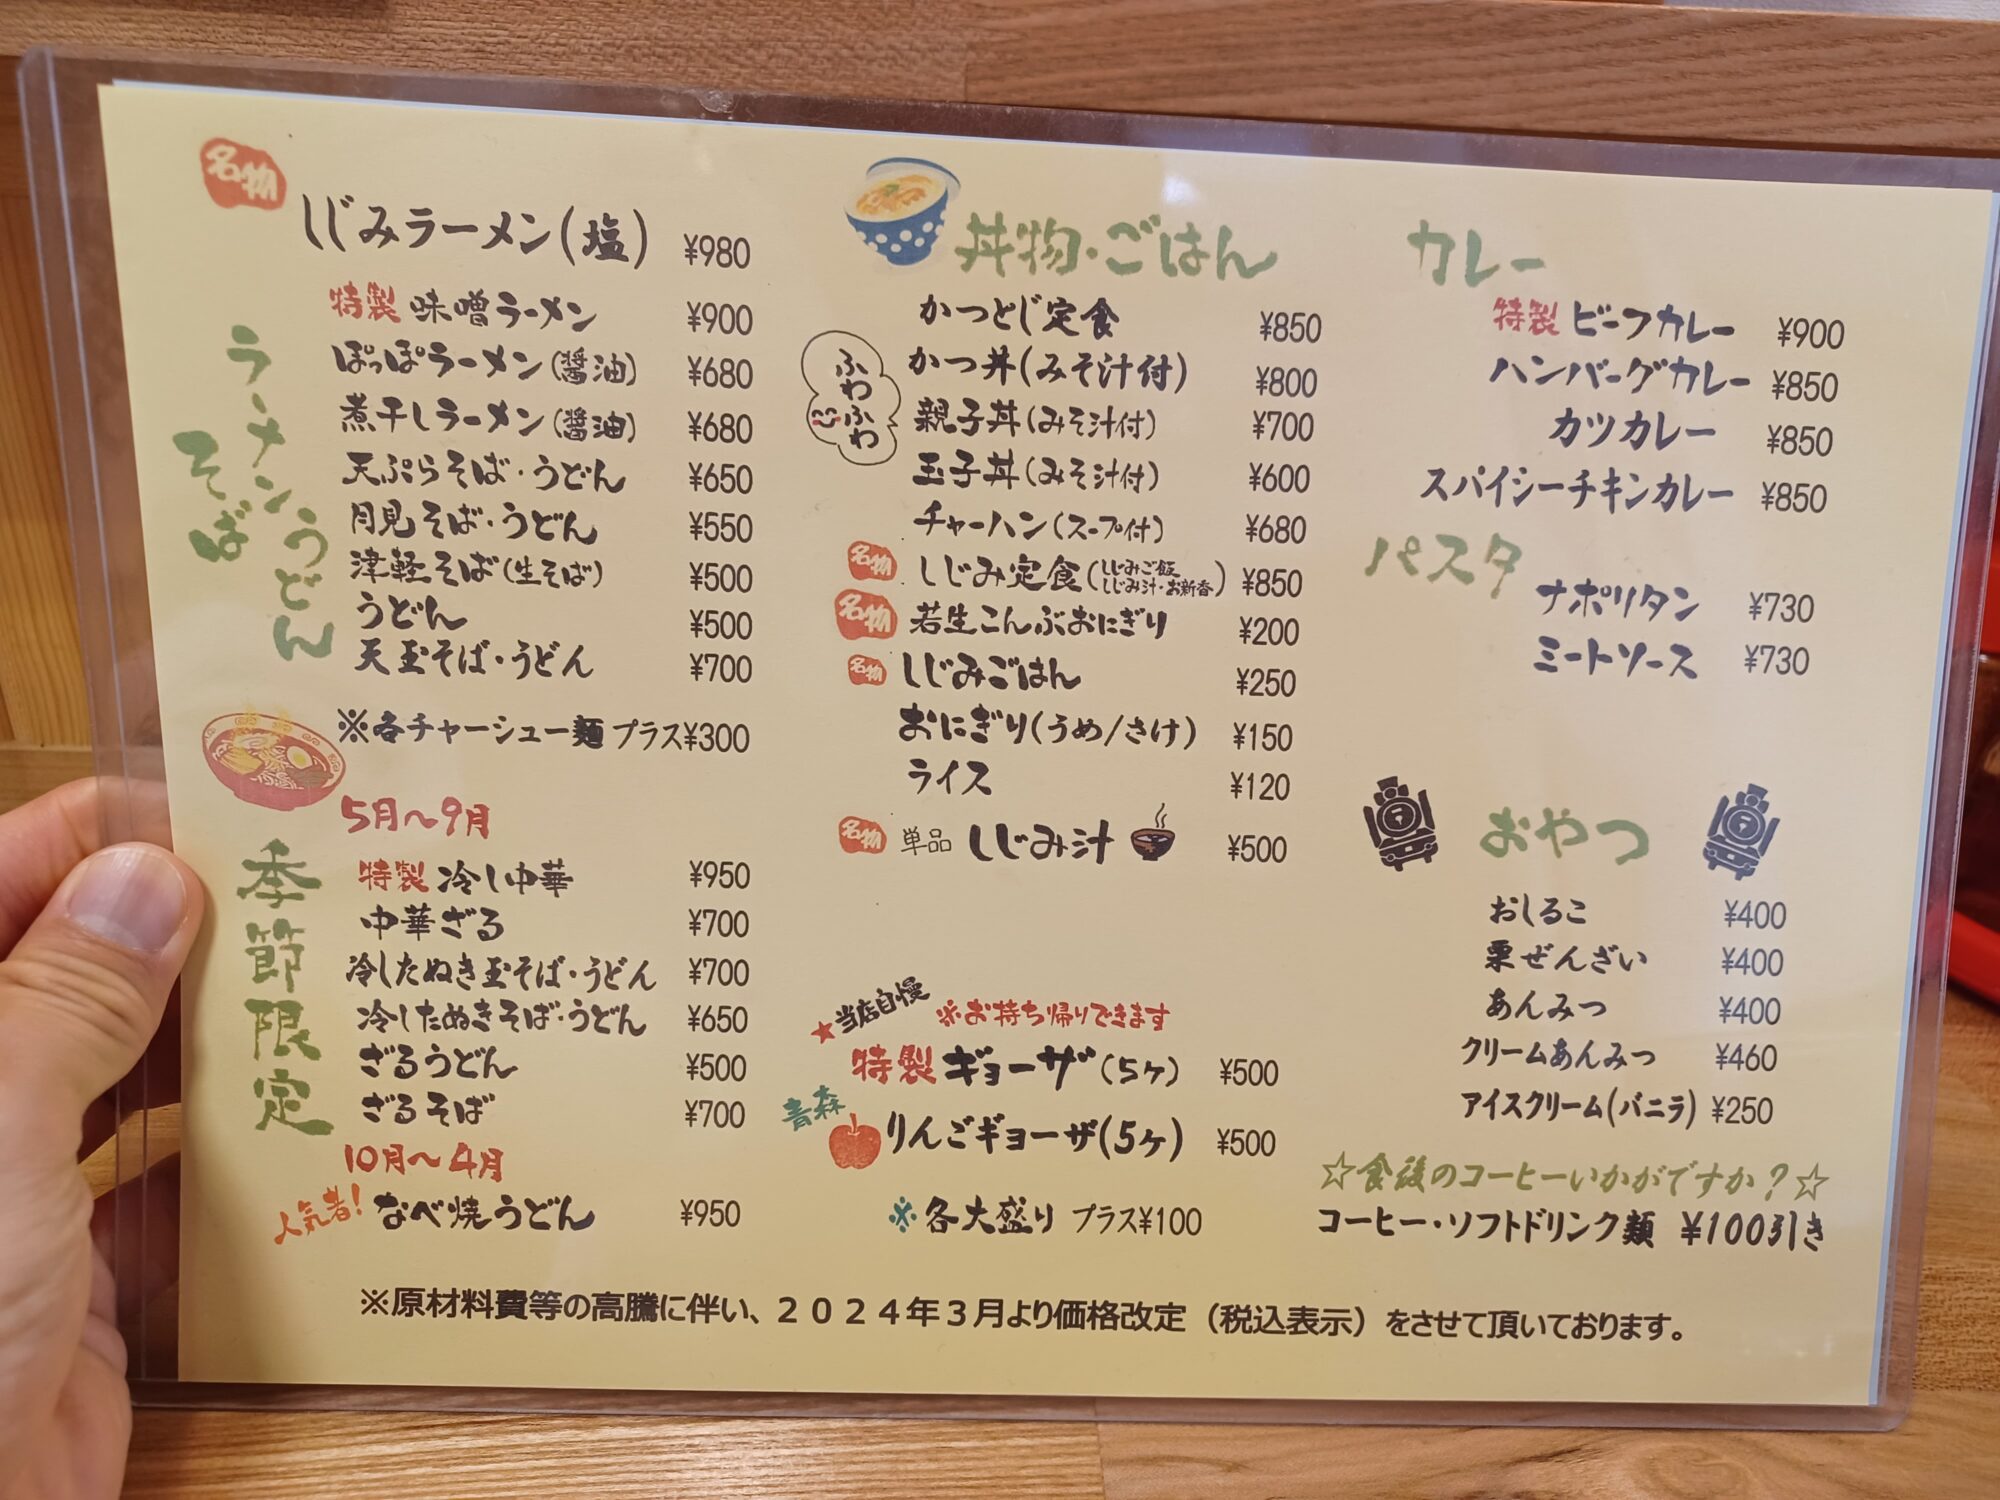 名物 しじみラーメン(塩) ¥980
ラーメン うどん そば
特製 味噌ラーメン ¥900
ぽっぽラーメン(醤油) ¥680
煮干しラーメン(醤油) ¥680
天ぷらそば・うどん ¥650
月見そば・うどん ¥550
津軽そば(生そば) ¥500
うどん ¥500
天玉そば・うどん ¥700
※各チャーシュー麺 プラス¥300
季節限定
5月～9月
特製 冷し中華 ¥950
中華ざる ¥700
冷したぬき玉そば・うどん ¥700
冷したぬきそば・うどん ¥650
ざるうどん ¥500
ざるそば ¥700
10月～4月
人気者! なべ焼うどん ¥950
丼物・ごはん
かつとじ定食 ¥850
ふわふわ
かつ丼(みそ汁付) ¥800
親子丼(みそ汁付) ¥700
玉子丼(みそ汁付) ¥600
チャーハン(スープ付) ¥680
名物 しじみ定食(しじみご飯 しじみ汁・お新香) ¥850
名物 若生こんぶおにぎり ¥200
名物 しじみごはん ¥250
おにぎり(うめ/さけ) ¥150
ライス ¥120
名物 単品 しじみ汁 ¥500
★当店自慢 ※お持ち帰りできます
特製 ギョーザ(5ヶ) ¥500
青森 りんごギョーザ(5ヶ) ¥500
※各大盛り プラス¥100
カレー
特製 ビーフカレー ¥900
ハンバーグカレー ¥850
カツカレー ¥850
スパイシーチキンカレー ¥850
パスタ
ナポリタン ¥730
ミートソース ¥730
おやつ
おしるこ ¥400
栗ぜんざい ¥400
あんみつ ¥400
クリームあんみつ ¥460
アイスクリーム(バニラ) ¥250
☆食後のコーヒーいかがですか?☆
コーヒー・ソフトドリンク類 ¥100引き
※原材料費等の高騰に伴い、２０２４年３月より価格改定（税込表示）をさせて頂いております。